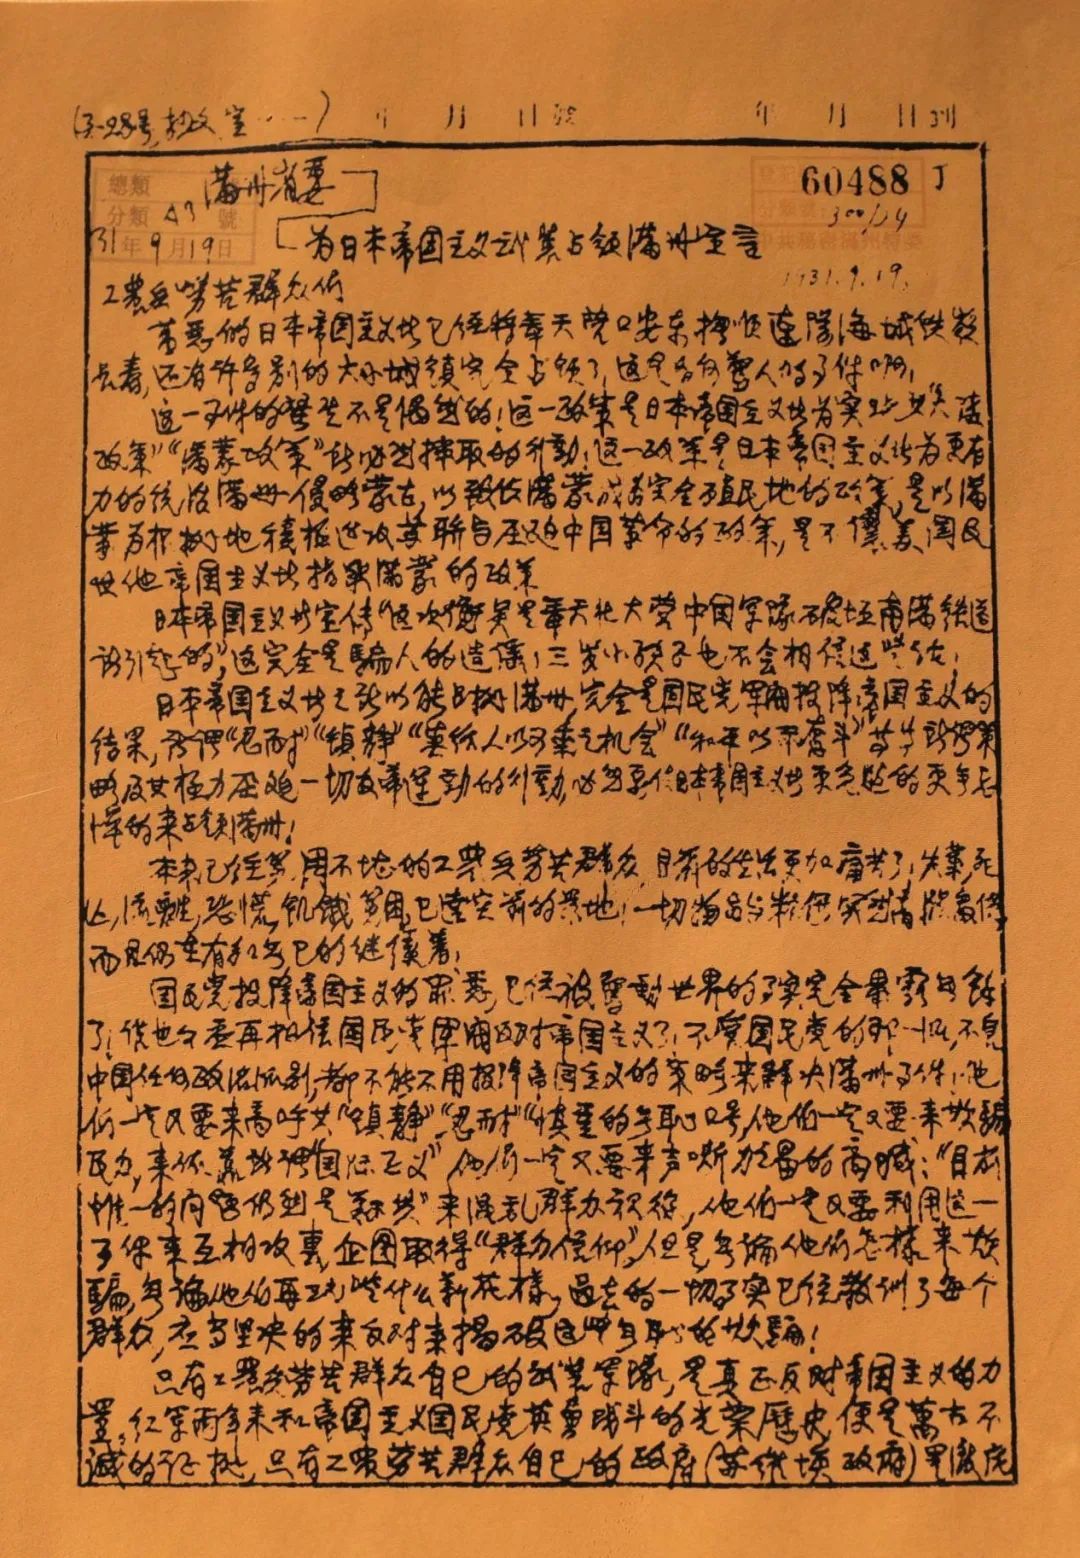 年 月 日
年 月 日到
總類
滿州省委
60488
分類 號
A3
300/14
31年9月19日
为日本帝国主义武装占领滿州宣言
1931.9.19.
工農兵劳苦群众們
萬惡的日本帝国主义者已经将奉天營口安东撫順遼陽海城铁嶺
長春,还有许多別的大小城鎮完全占领了,这是多么驚人的事件啊!
这一事件的發生不是偶然的!这一政策是日本帝国主义者为实现大陆
政策""滿蒙政策"所必然採取的行動!这一政策是日本帝国主义者为更有
力的统治滿州侵略蒙古,以致使滿蒙成为完全殖民地的政策,是以滿
蒙为根據地積極进攻苏聯与压迫中国革命的政策,是不讓美国及
其他帝国主义者指染滿蒙的政策
日本帝国主义者宣传"这次衝突是奉天北大营中国军隊破坏南滿铁道
所引起的",这完全是騙人的造謠,三岁小孩子也不会相信这些话!
日本帝国主义者之所以能占據滿州,完全是国民党军閥投降帝国主义的
结果,所谓"忍耐""鎮静" "和平以不奮斗"等等
略及其极力压迫一切反帝運動的行動,必然要使日本帝国主义者更急進的更無忌
惮的来占领滿州!
本来已经 不堪的工農兵劳苦群众,目前的生活更加痛苦了,失業死
亡,流離,恐慌,飢餓贫困,已達空前的 地!一切物品与粮食突然 高價
而且仍在有加無已的继續着!
国民党投降帝国主义的罪恶,已经被驚動世界的事实完全暴露無餘
了!谁也不要再相信国民党军閥反对帝国主义了!不管国民党的那一派,不管
中国任何政治派别,都不能不用投降帝国主义的策略来解决滿州事件,他
們一定又要来高呼其"鎮静""忍耐""慎重的無耻口号,他们一定又要来欺騙
民众,来依靠所謂"国际正义",他們一定又要来声嘶力竭的高喊:"目前
惟一的问题仍然是 共"来混乱群众视线,他们一定又要利用这一
事件来互相攻真,企图取得"群众信仰",但是無論他們怎樣来欺
騙,無論他们再玩些什么新花樣,过去的一切事实已经教訓了每个
群众,应当坚决的来反对来揭破这些無耻的欺騙!
只有工農兵劳苦群众自己的武装军隊,是真正反对帝国主义的力
量,红军两年来和帝国主义国民党英勇战斗的光荣歷史,便是萬古不
滅的证據,只有工農劳苦群众自己的政府(苏维埃政府)是澈底